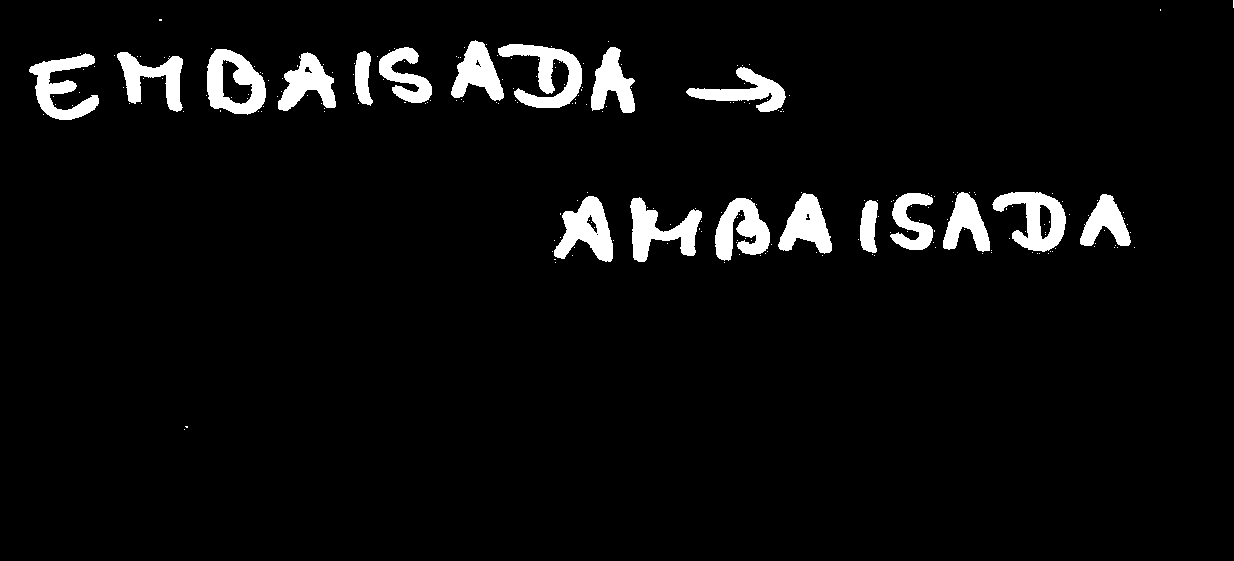 EMBAISADA →
AMBAISADA